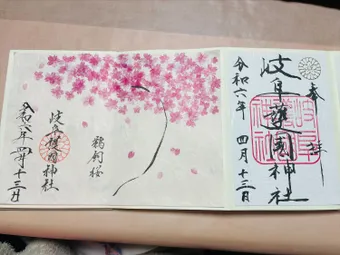 奉拝
岐阜護国神社
令和六年 四月十三日
鵜飼桜
岐阜護国神社
令和六年 四月十三日